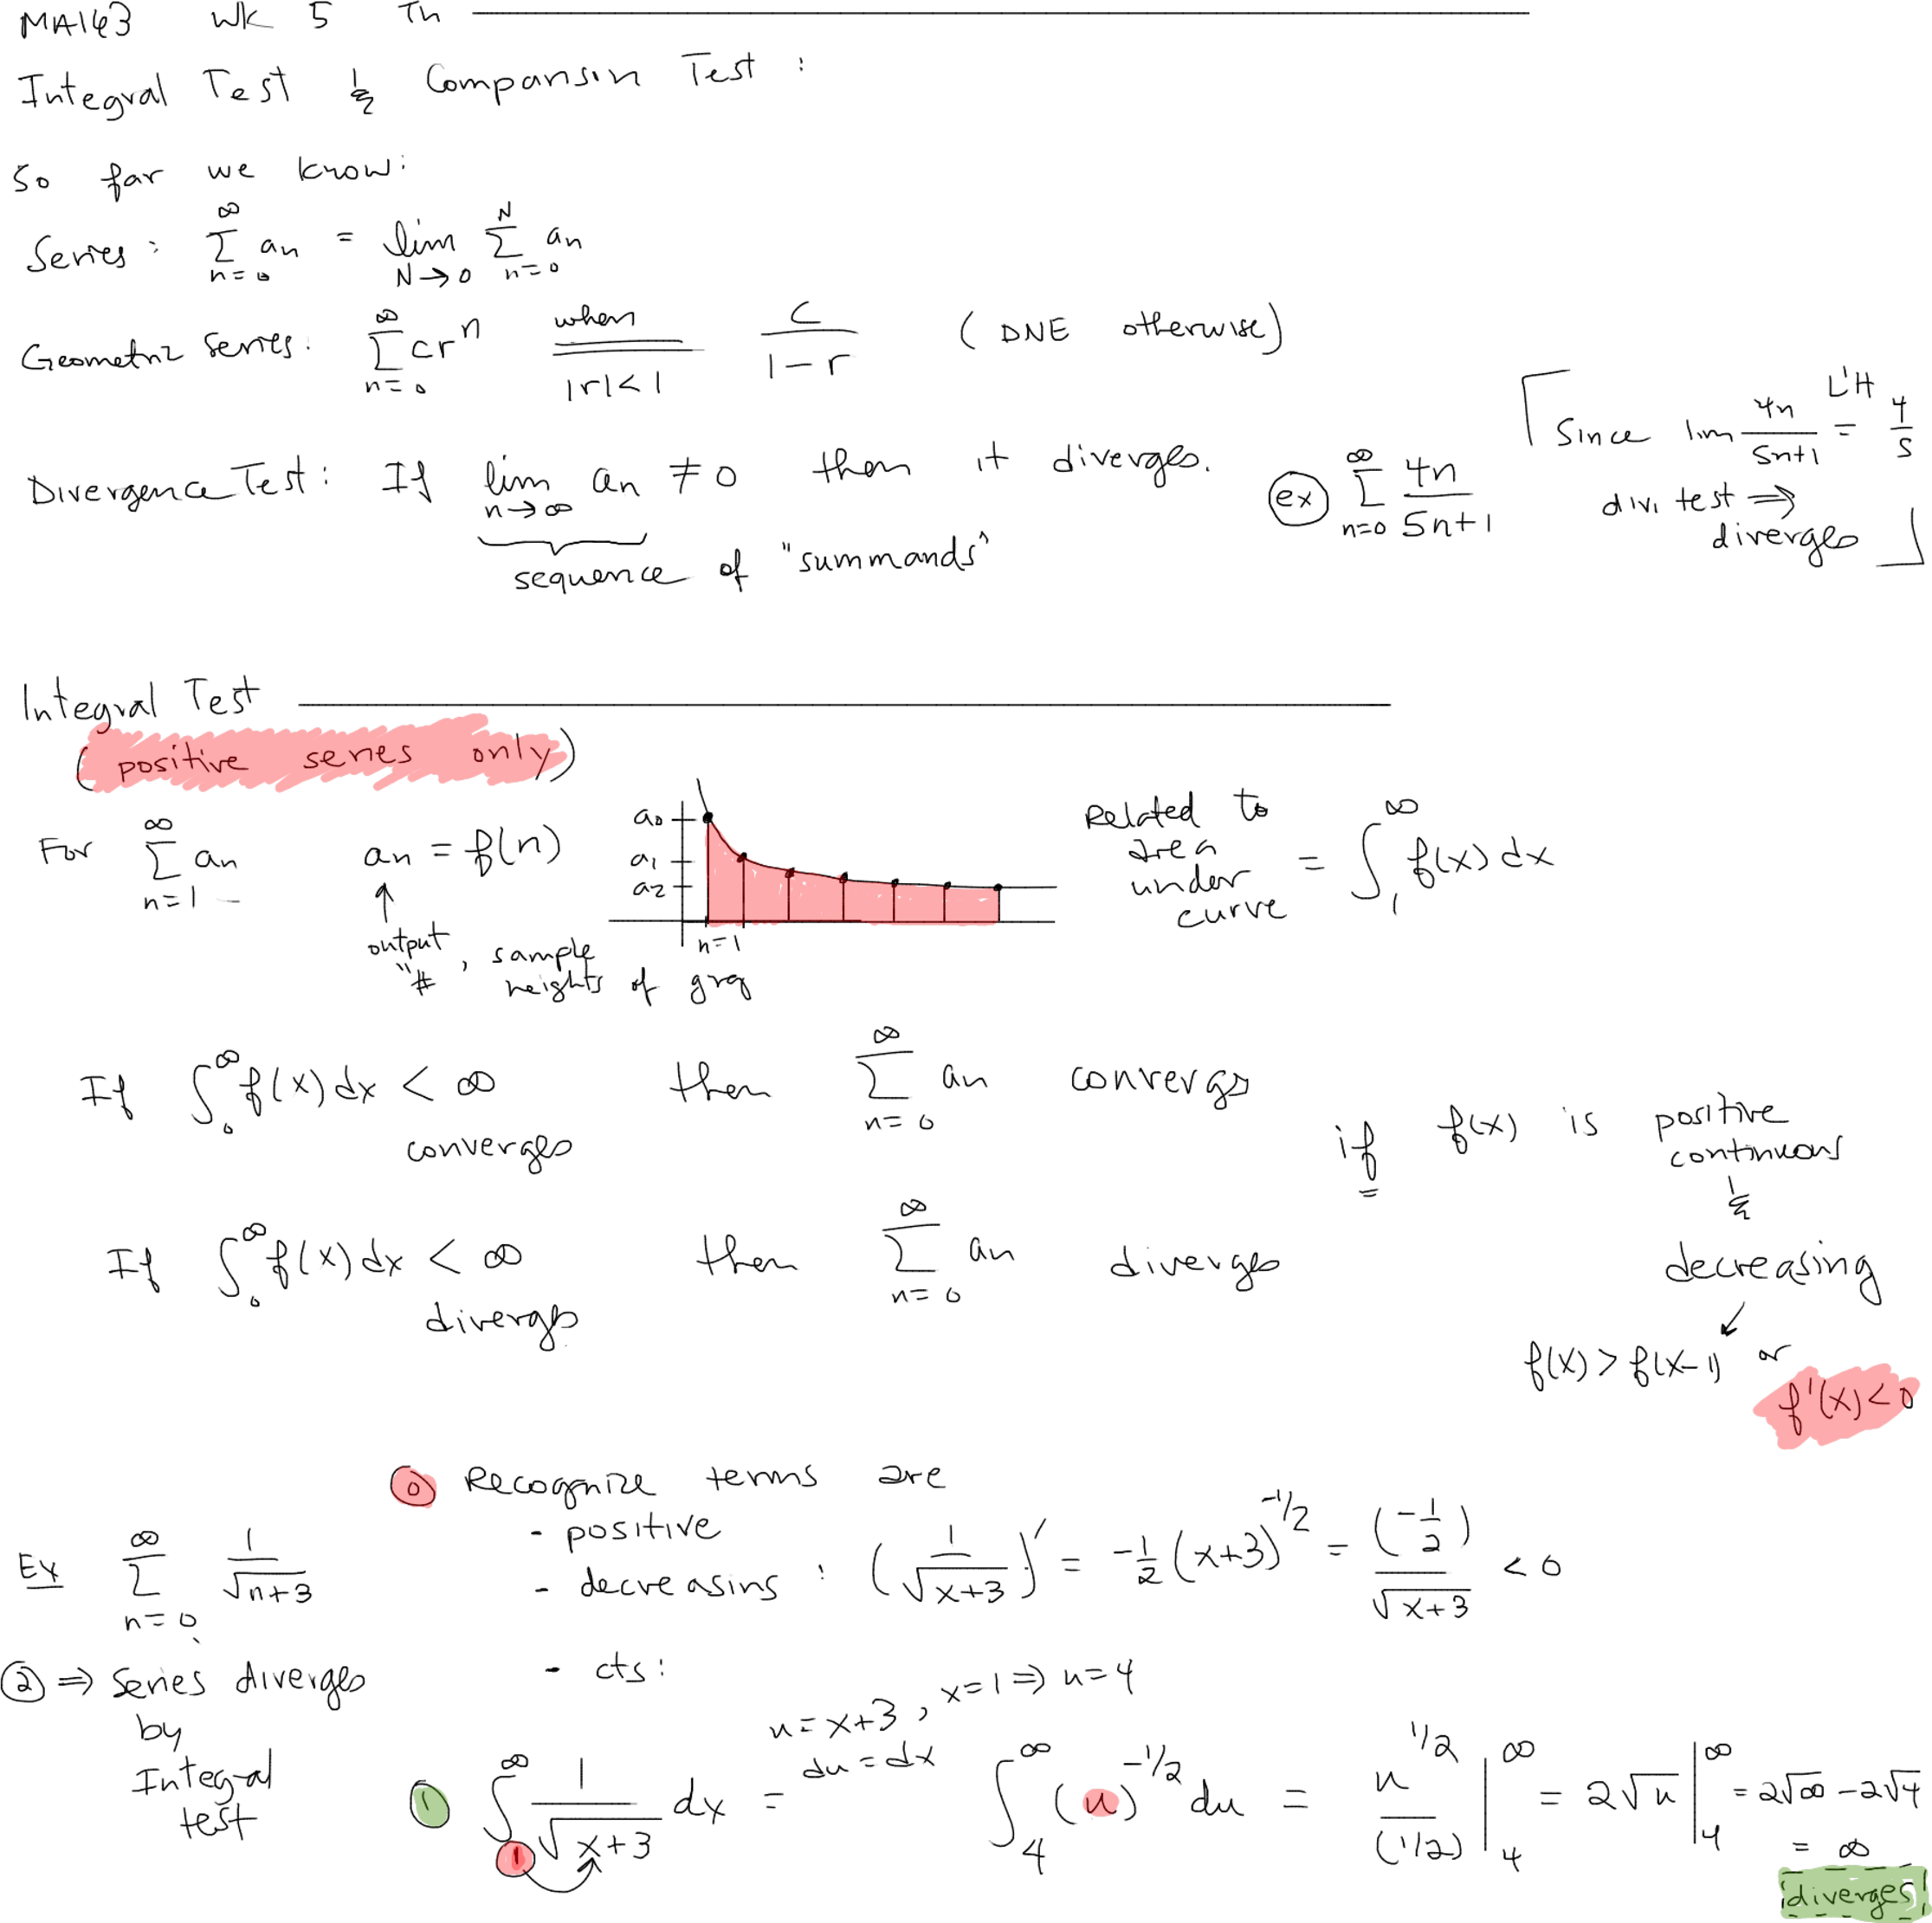 MA143 WK 5 Th
Integral Test & Comparison Test :
So far we know:
Series : ∑_{n=0}^{∞} an = lim_{N→0} ∑_{n=0}^{N} an
Geometric Series: ∑_{n=0}^{∞} cr^n when |r|<1 C/(1-r) (DNE otherwise)
Divergence Test: If lim_{n→∞} an ≠ 0 then it diverges.
sequence of "summands"
ex ∑_{n=0}^{∞} 4n/(5n+1)
Since lim 4n/(5n+1) L'H = 4/5
div. test ⇒
diverges
Integral Test
(positive series only)
For ∑_{n=1}^{∞} an
an = f(n)
↑
output
"#, sample
heights of
a0
a1
a2
n=1
Related to
area
under
curve = ∫_1^∞ f(x) dx
If ∫_0^∞ f(x) dx < ∞ then ∑_{n=0}^{∞} an converges
converges
If ∫_0^∞ f(x) dx < ∞ then ∑_{n=0}^{∞} an diverges
diverges
if f(x) is positive
continuous
&
decreasing
f(x) > f(x-1) or
f'(x) < 0
Ex ∑_{n=0}^{∞} 1/√(n+3)
0 Recognize terms are
- positive
- decreasing : (1/√(x+3))' = -1/2 (x+3)^{-1/2} = (-1/2)/√(x+3) < 0
- cts:
2 ⇒ Series diverges
by
Integral
test
1 ∫_1^∞ 1/√(x+3) dx =
u = x+3, x=1 ⇒ u=4
du = dx
∫_4^∞ (u)^{-1/2} du = u^{1/2}/(1/2) |_4^∞ = 2√u |_4^∞ = 2√∞ - 2√4
= ∞
diverges